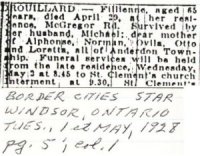 BROUILLARD — Fillienne, aged 65
years, died April 29, at her resi-
dence, McGregor Rd. Survived by
her husband, Michael; dear mother
of Alphonse, Norman, Ovila, Otto
and Loretta, all of Anderdon Town-
ship. Funeral services will be held
from the late residence, Wednesday,
May 2 at 8.45 to St. Clement's church
Interment, at 9.30, St. Clement's
BORDER CITIES STAR
WINDSOR, ONTARIO
TUES., 1st MAY, 1928
pg. 5, col. 1